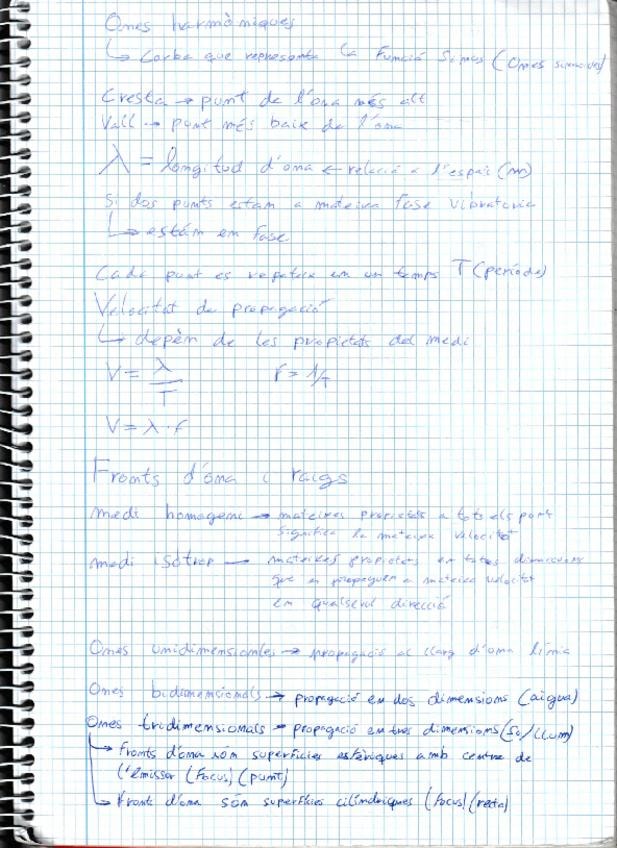 Ones harmòniques
↳ Corba que representa la Funció Sinus (Ones sinusoides)
Cresta → punt de l'ona més alt
Vall → punt més baix de l'ona
λ = longitud d'ona ← relació a l'espai (m)
Si dos punts estam a mateixa fase vibratoria
↳ están em fase
Cada punt es repeteix em un temps T (període)
Velocitat de propagació
↳ depèn de les propietats del medi
V = λ/T f = 1/T
V = λ · f
Fronts d'ona i raigs
medi homogeni → mateixes propietats a tots els punts
significa la mateixa velocitat
medi isòtrop — mateixes propietats en totes dimensions
que es propaguen a mateixa velocitat
em qualsevol direcció
Ones unidimensionals → propagació al llarg d'ona línia
Ones bidimensionals → propagació en dos dimensions (aigua)
Ones tridimensionals → propagació en tres dimensions (so/llum)
↳ Fronts d'ona són superfícies esfèriques amb centre de
l'émissor (Focus) (punt)
↳ Fronts d'ona són superfícies cilíndriques (Focus) (recta)